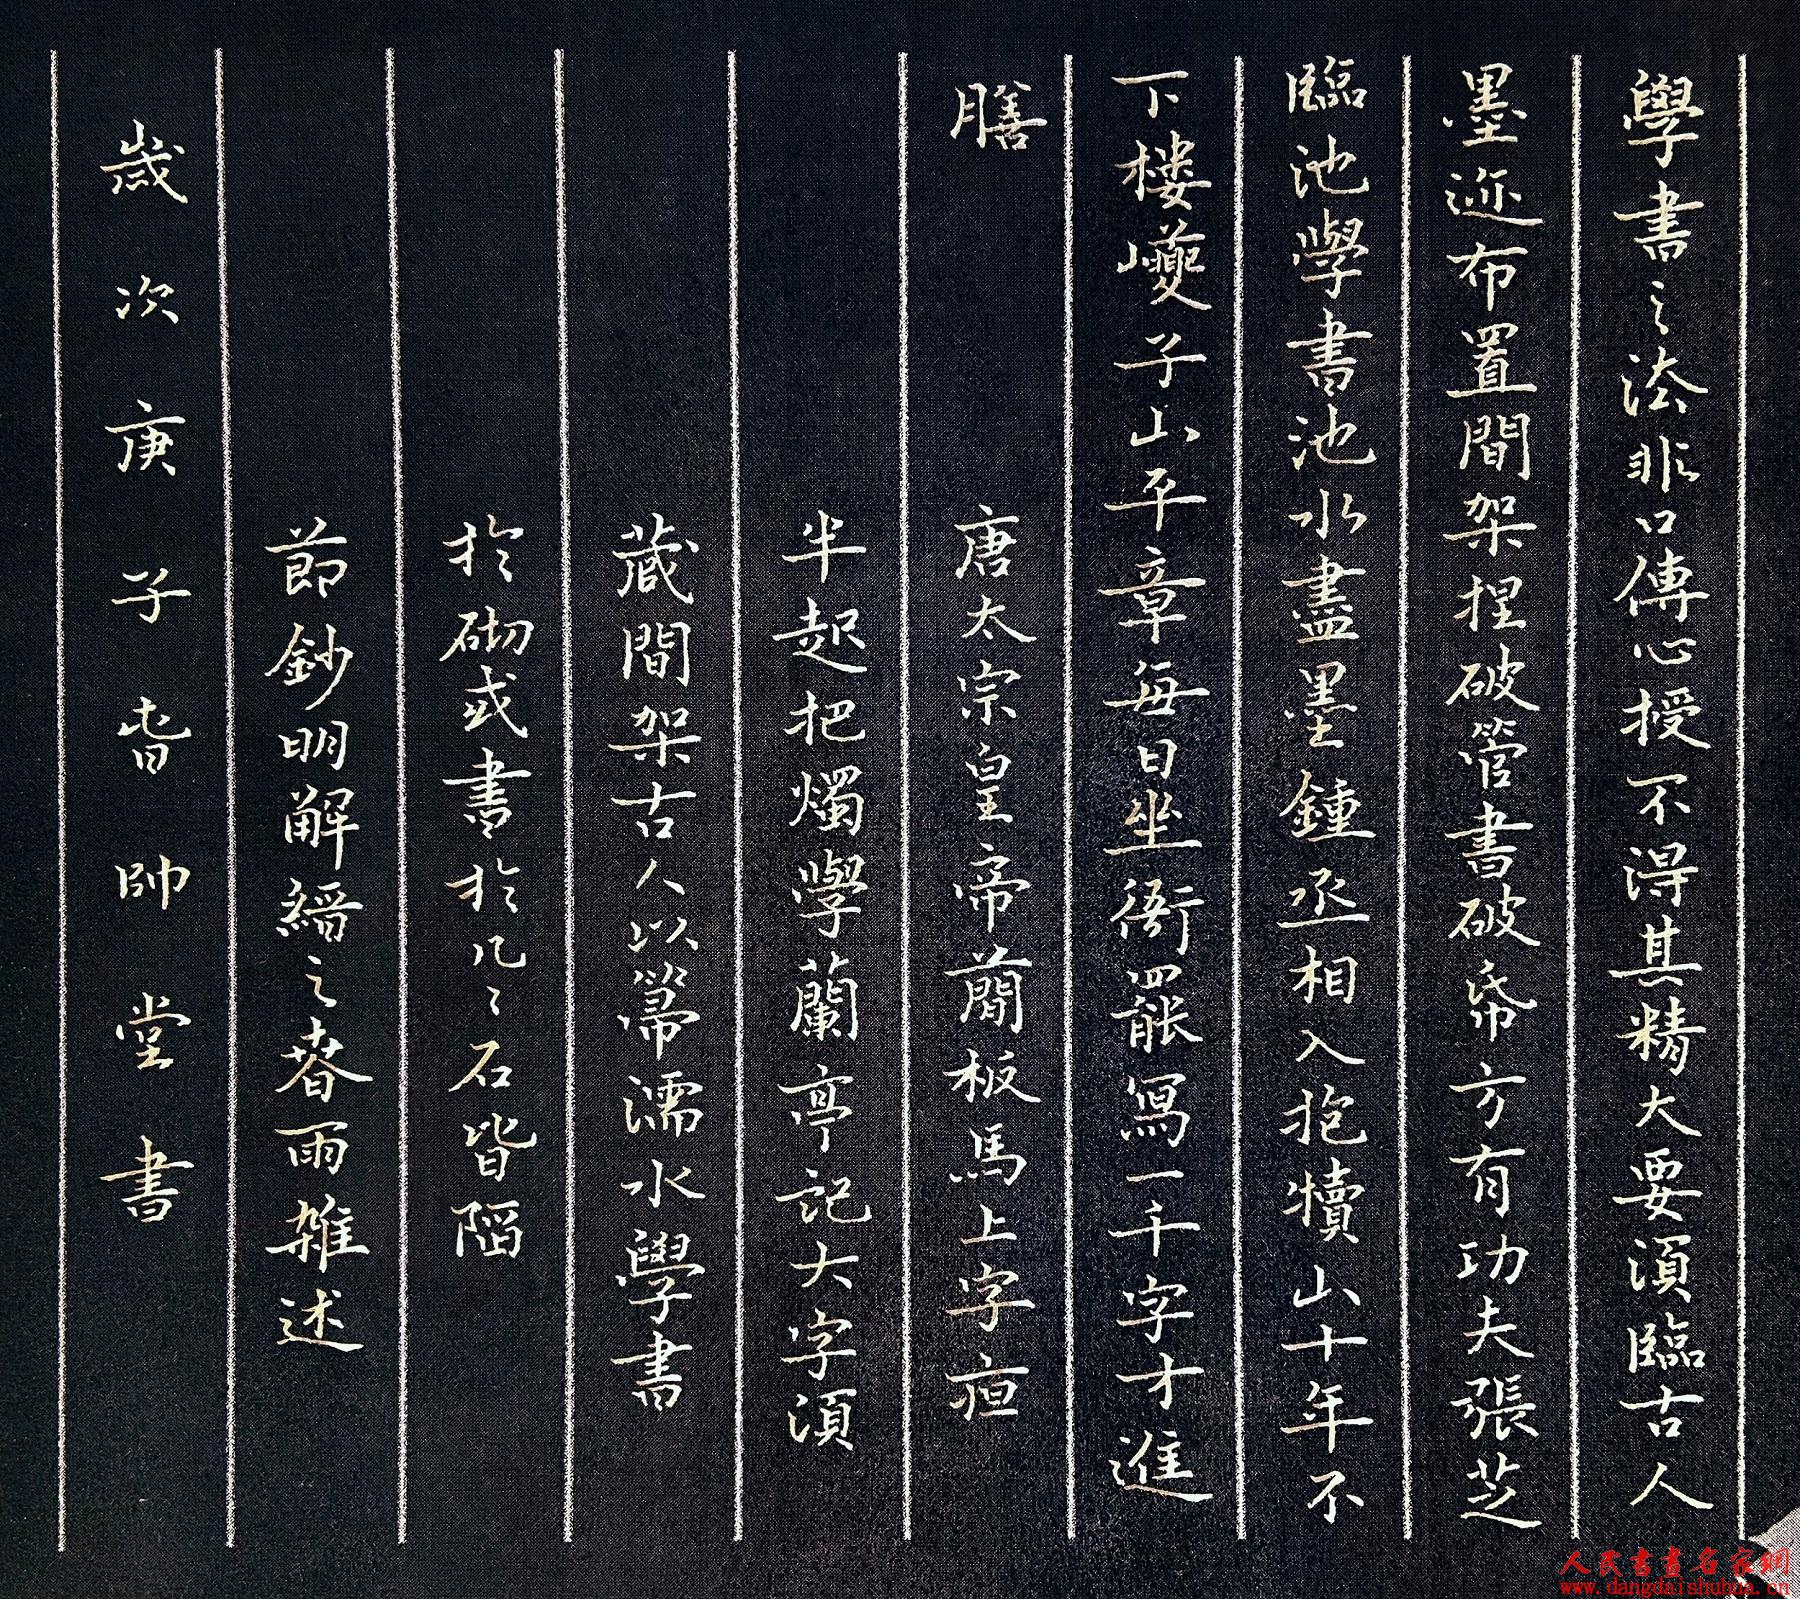 學書之法非口傳心授不得其精大要須臨古人
墨迹布置間架捏破管書破帋方有功夫張芝
臨池學書池水盡墨鍾丞相入抱犢山十年不
下樓巙子山平章每日坐衙罷寫一千字才進
膳
唐太宗皇帝簡板馬上字夜
半起把燭學蘭亭記大字須
藏間架古人以箒濡水學書
於砌或書於几几石皆陷
節鈔明解縉之春雨雜述
歲次庚子春帥堂書
人民書畫名家網
www.dangdaishuhua.cn